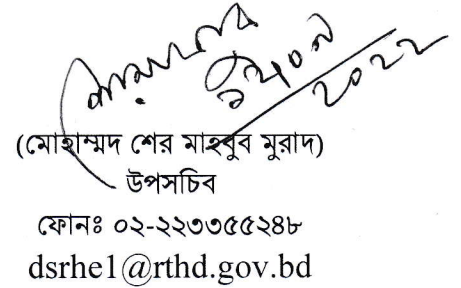 ২০২২
(মোহাম্মদ শের মাহবুব মুরাদ)
উপসচিব
ফোনঃ ০২-২২৩৩৫৫২৪৮
dsrhe1@rthd.gov.bd